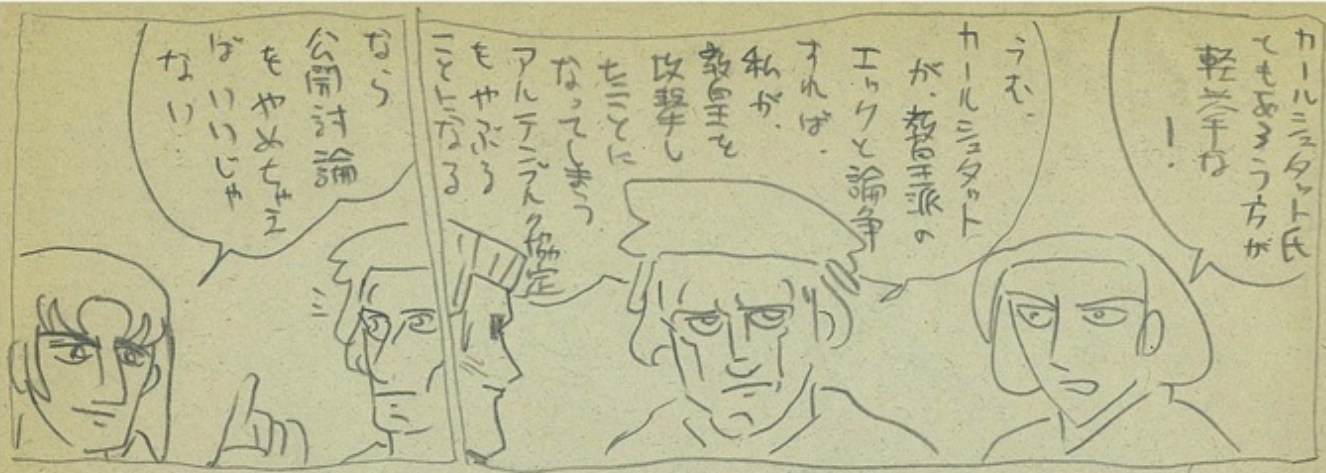 カールシュタット氏
ともあろう方が
軽卒な
！
うむ、
カールシュタット
が、教皇派の
エックと論争
すれば、
私が、
教皇を
攻撃し
たことに
なってしまう
アルテンブルク協定
をやぶる
ことになる
なら
公開討論
をやめちゃえ
ば いいじゃ
ない